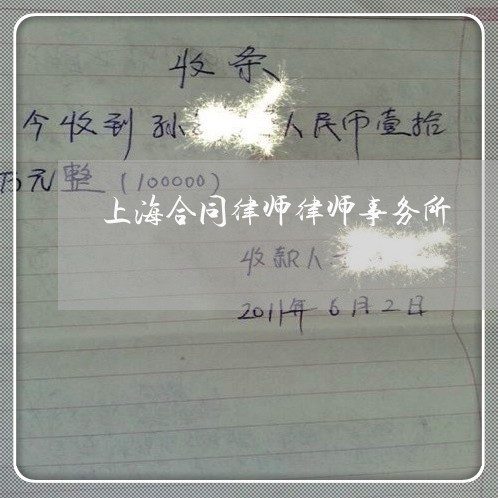 收条
今收到 孙 人民币壹拾
万元整（100000）
上海合同律师律师事务所
收款人
2011年6月2日